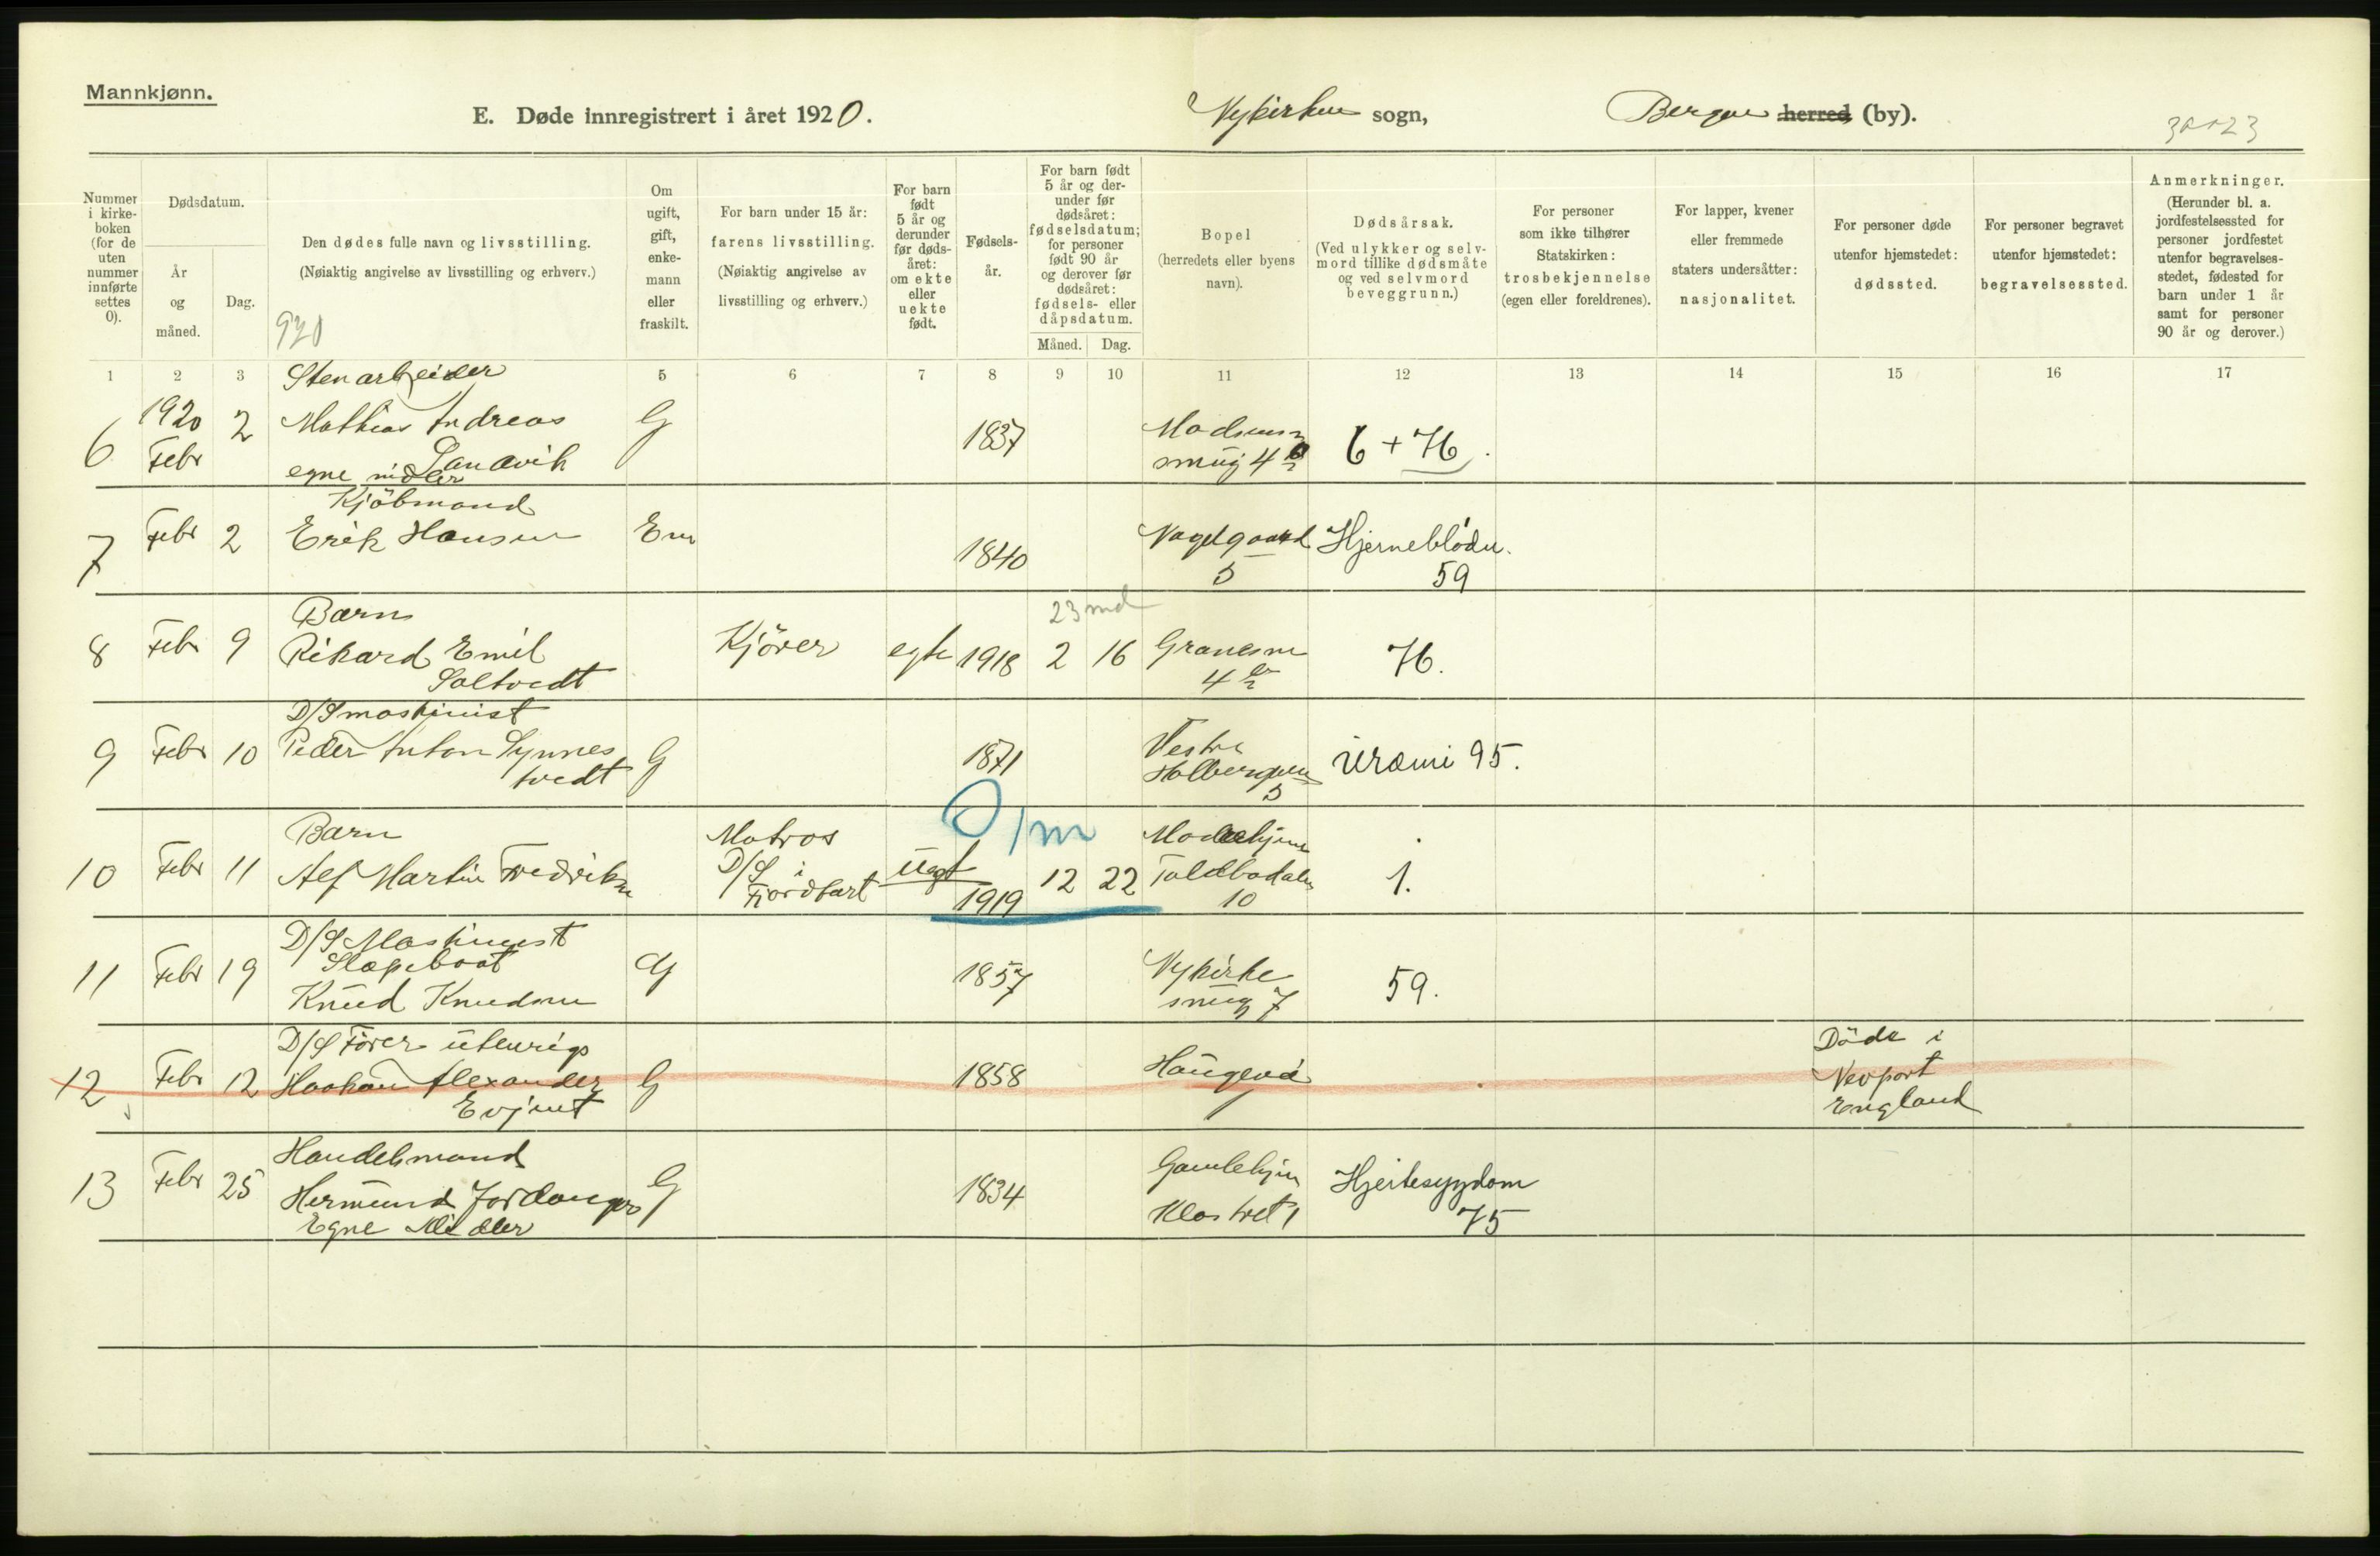 Mannkjønn.
E. Døde innregistrert i året 1920.
Nykirken sogn,
Bergen herred (by).
Nummer i kirke-boken (for de uten nummer innførte settes 0).
Dødsdatum.
År og måned.
Dag.
Den dødes fulle navn og livsstilling.
(Nøiaktig angivelse av livsstilling og erhverv.)
Om ugift, gift, enke-mann eller fraskilt.
For barn under 15 år: farens livsstilling.
(Nøiaktig angivelse av livsstilling og erhverv.)
For barn født 5 år og derunder før døds-året: om ekte eller uekte født.
Fødsels-år.
For barn født 5 år og der-under før dødsåret: fødselsdatum; for personer født 90 år og derover før dødsåret: fødsels- eller dåpsdatum.
Måned. Dag.
Bopel
(herredets eller byens navn).
Dødsårsak.
(Ved ulykker og selv-mord tillike dødsmåte og ved selvmord beveggrunn.)
For personer som ikke tilhører Statskirken: trosbekjennelse (egen eller foreldrenes).
For lapper, kvener eller fremmede staters undersåtter: nasjonalitet.
For personer døde utenfor hjemstedet: dødssted.
For personer begravet utenfor hjemstedet: begravelsessted.
Anmerkninger.
(Herunder bl. a. jordfestelsessted for personer jordfestet utenfor begravelses-stedet, fødested for barn under 1 år samt for personer 90 år og derover.)
1 2 3 5 6 7 8 9 10 11 12 13 14 15 16 17
Stenarbeider
6 1920 Febr 2 Mathias Andreas Sandvik G 1837 smug 4 6 + 76.
egne midler
Kjöbmand
7 Febr 2 Erik Hansen Em 1840 5 Hjerneblödn. 59
Barn 23 md
8 Febr 9 Rikard Emil Soltvedt Kjörer egte 1918 2 16 4 76.
D/S maskinist
9 Febr 10 Peder Anton Synnestvedt G 1871 Vestre Holbergsalm 5 Uræmi 95.
Barn 0/m
10 Febr 11 Alf Martin Fredriksen Matros D/S i Fjordfart Uegt 1919 12 22 Toldbodalm 10 1.
D/S Maskinist
Slæpebaat
11 Febr 19 Knud Knudsen G 1857 Nykirke smug 7 59.
D/S Förer utenrigs
12 Febr 12 Haakon Alexander Evjent G 1858 Döde i Newport England
Handelsmand
13 Febr 25 Hermund Jordanger G 1834 Gamlehjem Klostret 1 Hjertesygdom 75
Egne Midler